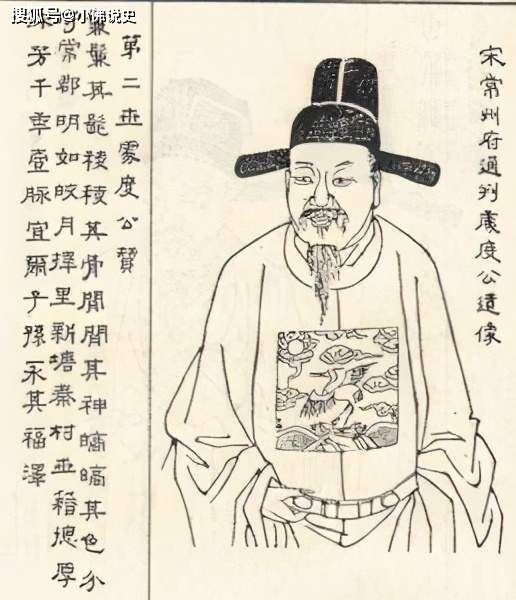 搜狐号@小佛说史
宋常州府通判處度公遺像
第二世處度公贊
鬑其髭稜稜其骨閒閒其神皜皜其色分
常郡明如皎月擇里新塘秦村世厚
芳千秊壹脉宜爾子孫永其福澤